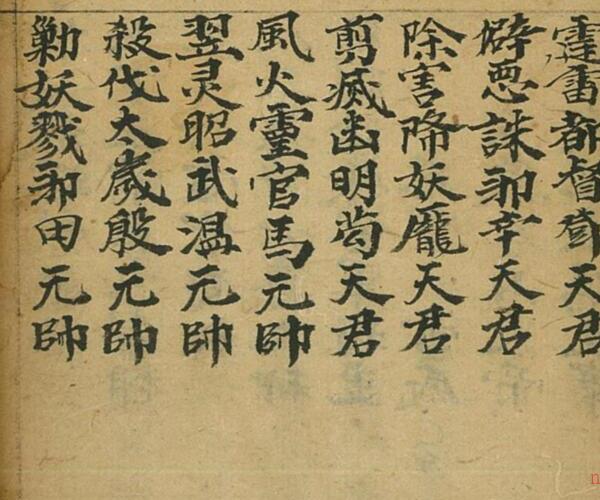 霆雷都督鄧天君
僻悪誅邪辛天君
除害降妖龐天君
剪滅幽明苟天君
風火靈官馬元帥
翌灵昭武温元帥
殺伐太歲殷元帥
勦妖戮邪田元帥